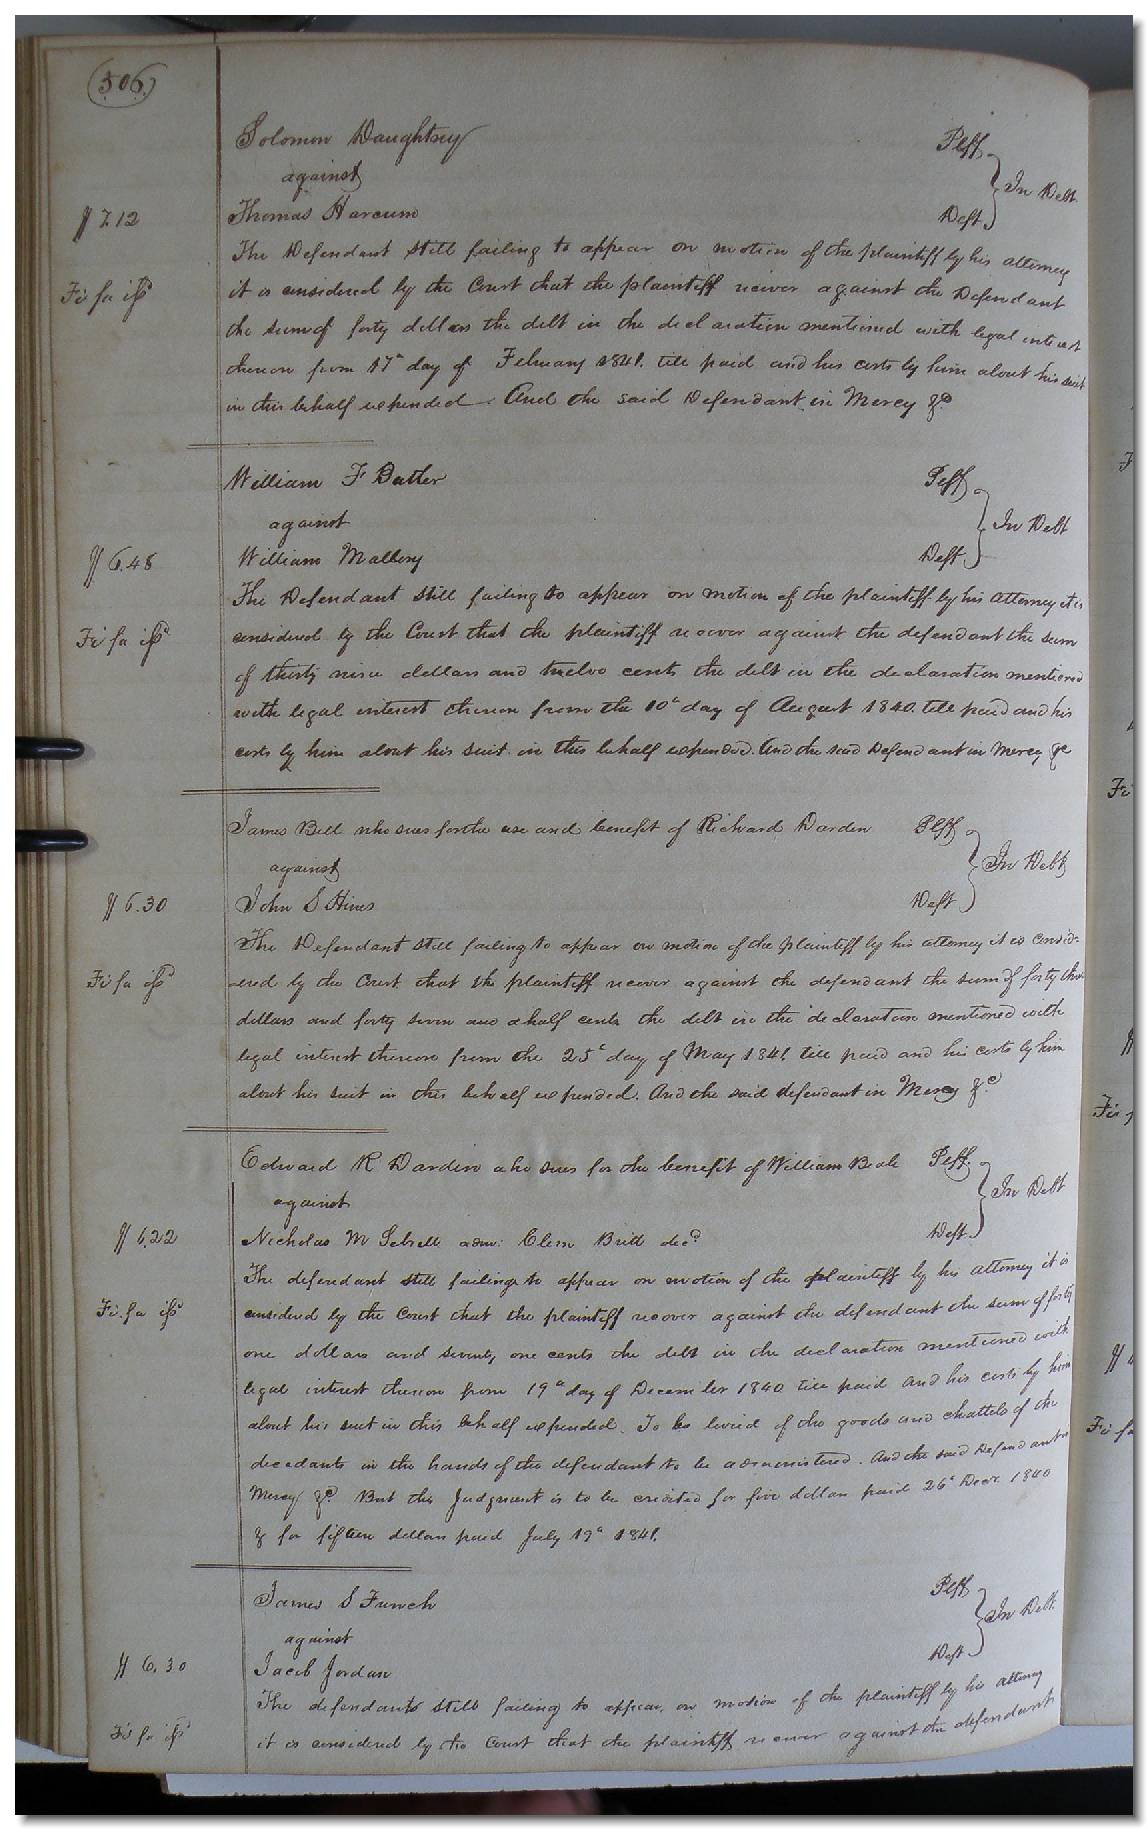 506
Solomon Daughtrey Plff
against In Debt
$ 7.12 Thomas Harcum Deft
The Defendant still failing to appear on motion of the plaintiff by his attorney
Fi fa issd it is considered by the Court that the plaintiff recover against the Defendant
the sum of forty dollars the debt in the declaration mentioned with legal interest
thereon from 17th day of February 1841. till paid and his costs by him about his suit
in this behalf expended. And the said Defendant in Mercy &c
William F Butler Plff
against In Debt
$ 6.48 William Mallory Deft
The Defendant still failing to appear on motion of the plaintiff by his attorney it is
Fi fa issd considered by the Court that the plaintiff recover against the defendant the sum
of thirty nine dollars and twelve cents the debt in the declaration mentioned
with legal interest thereon from the 10th day of August 1840. till paid and his
costs by him about his suit in this behalf expended. And the said Defendant in Mercy &c
James Bell who sues for the use and benefit of Richard Darden Plff
against In Debt
$ 6.30 John S Hines Deft
The Defendant still failing to appear on motion of the plaintiff by his attorney it is consid-
Fi fa issd -ered by the Court that the plaintiff recover against the defendant the sum of forty three
dollars and forty seven and a half cents the debt in the declaration mentioned with
legal interest thereon from the 25th day of May 1841 till paid and his costs by him
about his suit in this behalf expended. And the said defendant in Mercy &c
Edward R Darden who sues for the benefit of William Beale Plff.
against In Debt
$ 6.22 Nicholas M Sebrell adm: Clem Britt decd Deft
The defendant still failing to appear on motion of the plaintiff by his attorney it is
Fi. fa issd considered by the Court that the plaintiff recover against the defendant the sum of forty
one dollars and seventy one cents the debt in the declaration mentioned with
legal interest thereon from 19th day of December 1840 till paid and his costs by him
about his suit in this behalf expended. To be levied of the goods and chattels of the
decedants in the hands of the defendant to be administered. And the said Defendant in
Mercy &c But this Judgment is to be credited for five dollars paid 26th Decr. 1840
& for fifteen dollars paid July 19th 1841.
James S French Plff
against In Debt
$ 6.30 Jacob Jordan Deft
The defendants still failing to appear, on motion of the plaintiff by his attorney
Fi fa issd it is considered by the Court that the plaintiff recover against the defendant